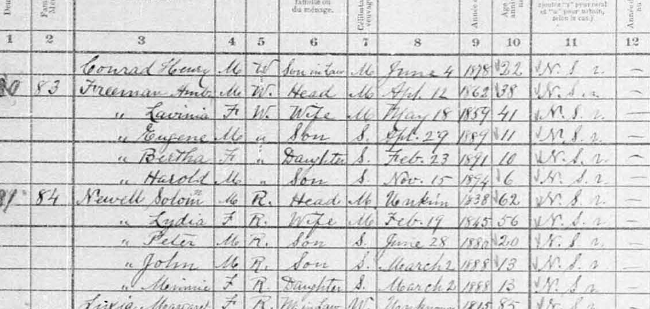 du ménage.
1 2 3 4 5 6 7 8 9 10 11 12
Conrad Henry M W Son in Law M June 4 1878 22 N. S. r —
83 Freeman M. W. Head M. Apr. 12 1862 38 N. S. r —
" Lavinia F W. Wife M May 18 1859 41 N. S. r —
" Eugene M " Son S. 29 1889 11 N. S. r —
" Bertha F " Daughter S. Feb. 23 1891 10 N. S. r —
" Harold M " Son S. Nov. 15 1894 6 N. S. r —
84 Newell M R. Head M. 1838 62 N. S. r —
" Lydia F R. Wife M Feb. 19 1845 56 N. S. r —
" Peter M R. Son S. June 28 20 N. S. r —
" John M R. Son S. March 2 1888 13 N. S. r —
" F R. Daughter S. March 2 1888 13 N. S. r —
Margaret F R. W 1815 85 N. S. r —